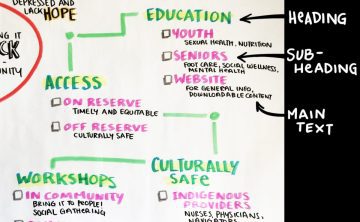 DEPRESSED AND
LACK HOPE
ING IT
CK
UNITY
EDUCATION
YOUTH
SEXUAL HEALTH, NUTRITION
SENIORS
FOOT CARE, SOCIAL WELLNESS,
MENTAL HEALTH
WEBSITE
FOR GENERAL INFO,
DOWNLOADABLE CONTENT
HEADING
SUB-
HEADING
MAIN
TEXT
ACCESS
ON RESERVE
TIMELY AND EQUITABLE
OFF RESERVE
CULTURALLY SAFE
WORKSHOPS
IN COMMUNITY
BRING IT TO PEOPLE!
SOCIAL GATHERING
CULTURALLY
SAFE
INDIGENOUS
PROVIDERS
NURSES, PHYSICIANS,
NAVIGATORS